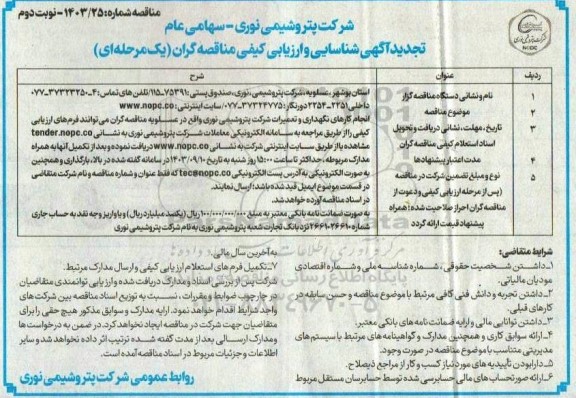 مناقصه شماره: ۱۴۰۳/۲۵ - نوبت دوم
شرکت پتروشیمی نوری - سهامی عام
تجدید آگهی شناسایی و ارزیابی کیفی مناقصه گران (یک مرحله‌ای)
NOPC
ردیف
عنوان
شرح
۱
نام و نشانی دستگاه مناقصه گزار
استان بوشهر، عسلویه، شرکت پتروشیمی نوری، صندوق پستی: ۷۵۳۹۱-۱۱۵ تلفن های تماس: ۴-۳۷۳۲۳۲۵۰-۰۷۷
داخلی ۲۲۵۱-۲۲۵۴ دورنگار: ۳۷۳۲۴۷۷۵-۰۷۷ سایت اینترنتی: www.nopc.co
۲
موضوع مناقصه
انجام کارهای نگهداری و تعمیرات شرکت پتروشیمی نوری واقع در عسلویه
۳
تاریخ، مهلت، نشانی دریافت و تحویل
اسناد استعلام کیفی مناقصه گران
مناقصه گران می توانند فرم‌های ارزیابی
کیفی را از طریق مراجعه به سامانه الکترونیکی معاملات شرکت پتروشیمی نوری به نشانی tender.nopc.co
مشاهده یا از طریق سایت اینترنتی شرکت به نشانی www.nopc.co دریافت نموده و بعد از تکمیل آنها به همراه
مدارک مربوطه، حداکثر تا ساعت ۱۵:۰۰ روز شنبه به تاریخ ۱۴۰۳/۰۹/۱۰ در سامانه گفته شده در بالا، بارگذاری و همچنین
به صورت الکترونیکی به آدرس پست الکترونیکی tec@nopc.co که فقط عنوان و شماره مناقصه و نام شرکت متقاضی
در قسمت موضوع ایمیل قید شده باشد؛ ارسال نمایند.
۴
مدت اعتبار پیشنهادها
در اسناد مناقصه آورده خواهد شد.
۵
نوع و مبلغ تضمین شرکت در مناقصه
(پس از مرحله ارزیابی کیفی و دعوت از
مناقصه گران احراز صلاحیت شده؛ همراه
پیشنهاد قیمت ارائه گردد
به صورت ضمانت نامه بانکی معتبر به مبلغ ۱۰۰/۰۰۰/۰۰۰/۰۰۰ ریال (یکصد میلیارد ریال) و یا واریز وجه نقد به حساب جاری
شماره ۲۶۶۱۰۲۶۶۱۰ نزد بانک تجارت شعبه پتروشیمی نوری به نام شرکت پتروشیمی نوری
شرایط متقاضی:
۱- داشتن شخصیت حقوقی، شماره شناسه ملی و شماره اقتصادی
مودیان مالیاتی.
۲- داشتن تجربه و دانش فنی کافی مرتبط با موضوع مناقصه و حسن سابقه در
کارهای قبلی.
۳- داشتن توانایی مالی و ارایه ضمانت نامه های بانکی معتبر.
۴- ارائه سوابق کاری و همچنین مدارک و گواهینامه های مرتبط با سیستم های
مدیریتی متناسب با موضوع مناقصه در صورت وجود.
۵- دارا بودن تأییدیه های مورد نیاز کسب و کار از مراجع ذیصلاح.
۶- ارائه صورتحساب های مالی حسابرسی شده توسط حسابرسان مستقل مربوط
به آخرین سال مالی.
۷- تکمیل فرم های استعلام ارزیابی کیفی و ارسال مدارک مرتبط.
شرکت پس از بررسی اسناد و مدارک دریافت شده و ارزیابی توانمندی متقاضیان
در چارچوب ضوابط و مقررات، نسبت به توزیع اسناد مناقصه بین شرکت های
واجد شرایط اقدام خواهد نمود. ارایه مدارک و سوابق مذکور هیچ حقی را برای
متقاضیان جهت شرکت در مناقصه ایجاد نخواهد کرد. در ضمن به درخواست ها
و مدارک ارسالی بعد از مدت گفته شده ترتیب اثر داده نخواهد شد و سایر
اطلاعات و جزئیات مربوط در اسناد مناقصه آمده است.
روابط عمومی شرکت پتروشیمی نوری